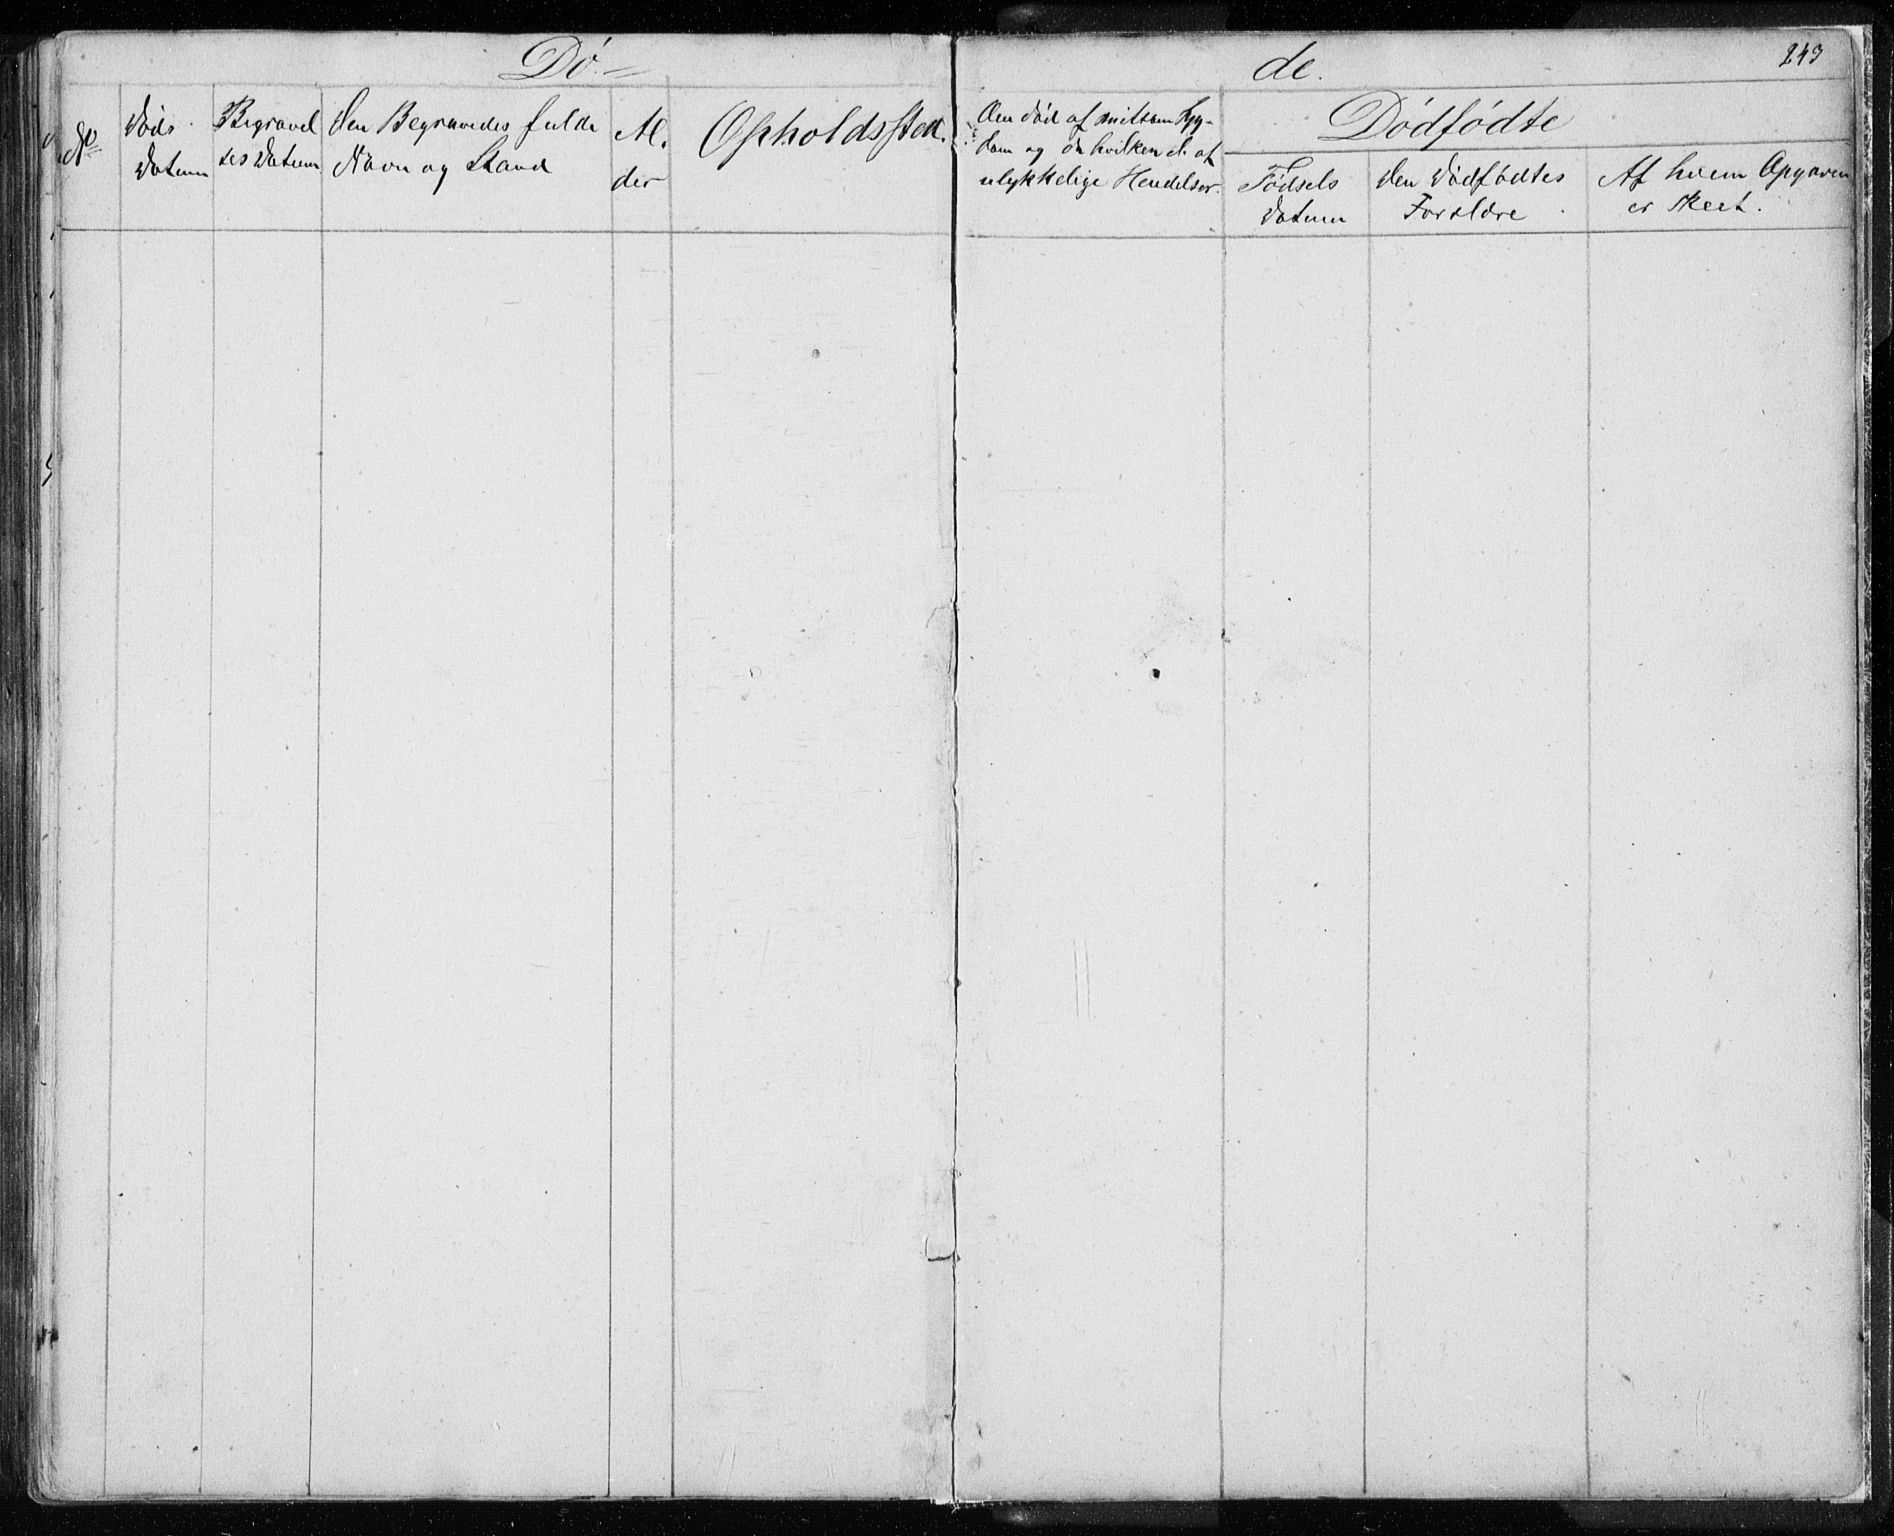 Dø-
de.
243
No
Døds
Datum
Begravel
ses Datum
Den Begravedes fulde
Navn og Stand
Al.
der
Opholdssted.
Om død af smitsom Syg-
dom og om hvilken el. af
ulykkelige Hendelser.
Dødfødte
Fødsels
Datum
Den Dødfødtes
Forældre
Af hvem Opgaven
er skeet.